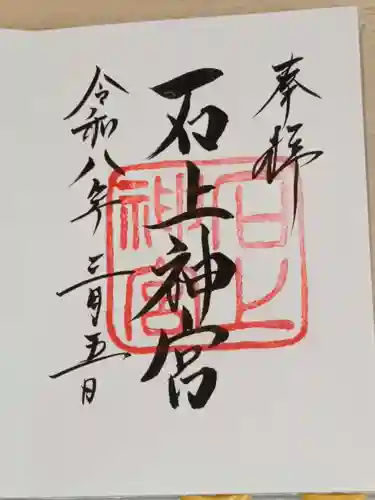 奉拝
石上神宮
石上神宮
令和八年二月五日